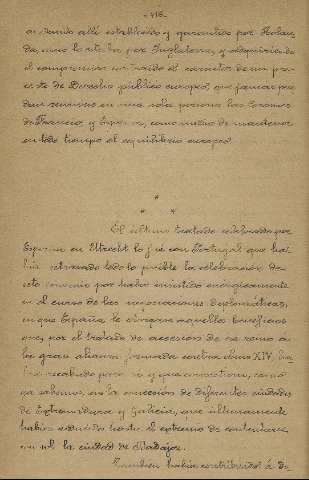 -416-
allí establecidos y garantidos por Holan-
da, como lo eran por Inglaterra, y adquiriendo
el compromiso contraido el carácter de un pre-
cepto de Derecho público europeo que jamás pu-
dan reunirse en una sola persona las Coronas
de Francia y España, como medio de mantener
en todo tiempo el equilibrio europeo.
*
* *
El último tratado celebrado por
España en Utrecht lo fué con Portugal que ha-
bía retrasado todo lo posible la celebración de
este convenio por haber insistido enérgicamente
en el curso de las negociaciones diplomáticas,
en que España, le otorgara aquellos beneficios
que, por el tratado de accesión de su reino á
la gran alianza formada contra Luis XIV, ha-
bía recabado para sí y que consistían, como
ya sabemos, en la concesión de diferentes ciudades
de Extremadura y Galicia, que últimamente
había reducido hasta el extremo de contentarse
con la ciudad de Badajoz.
También había contribuido á di-